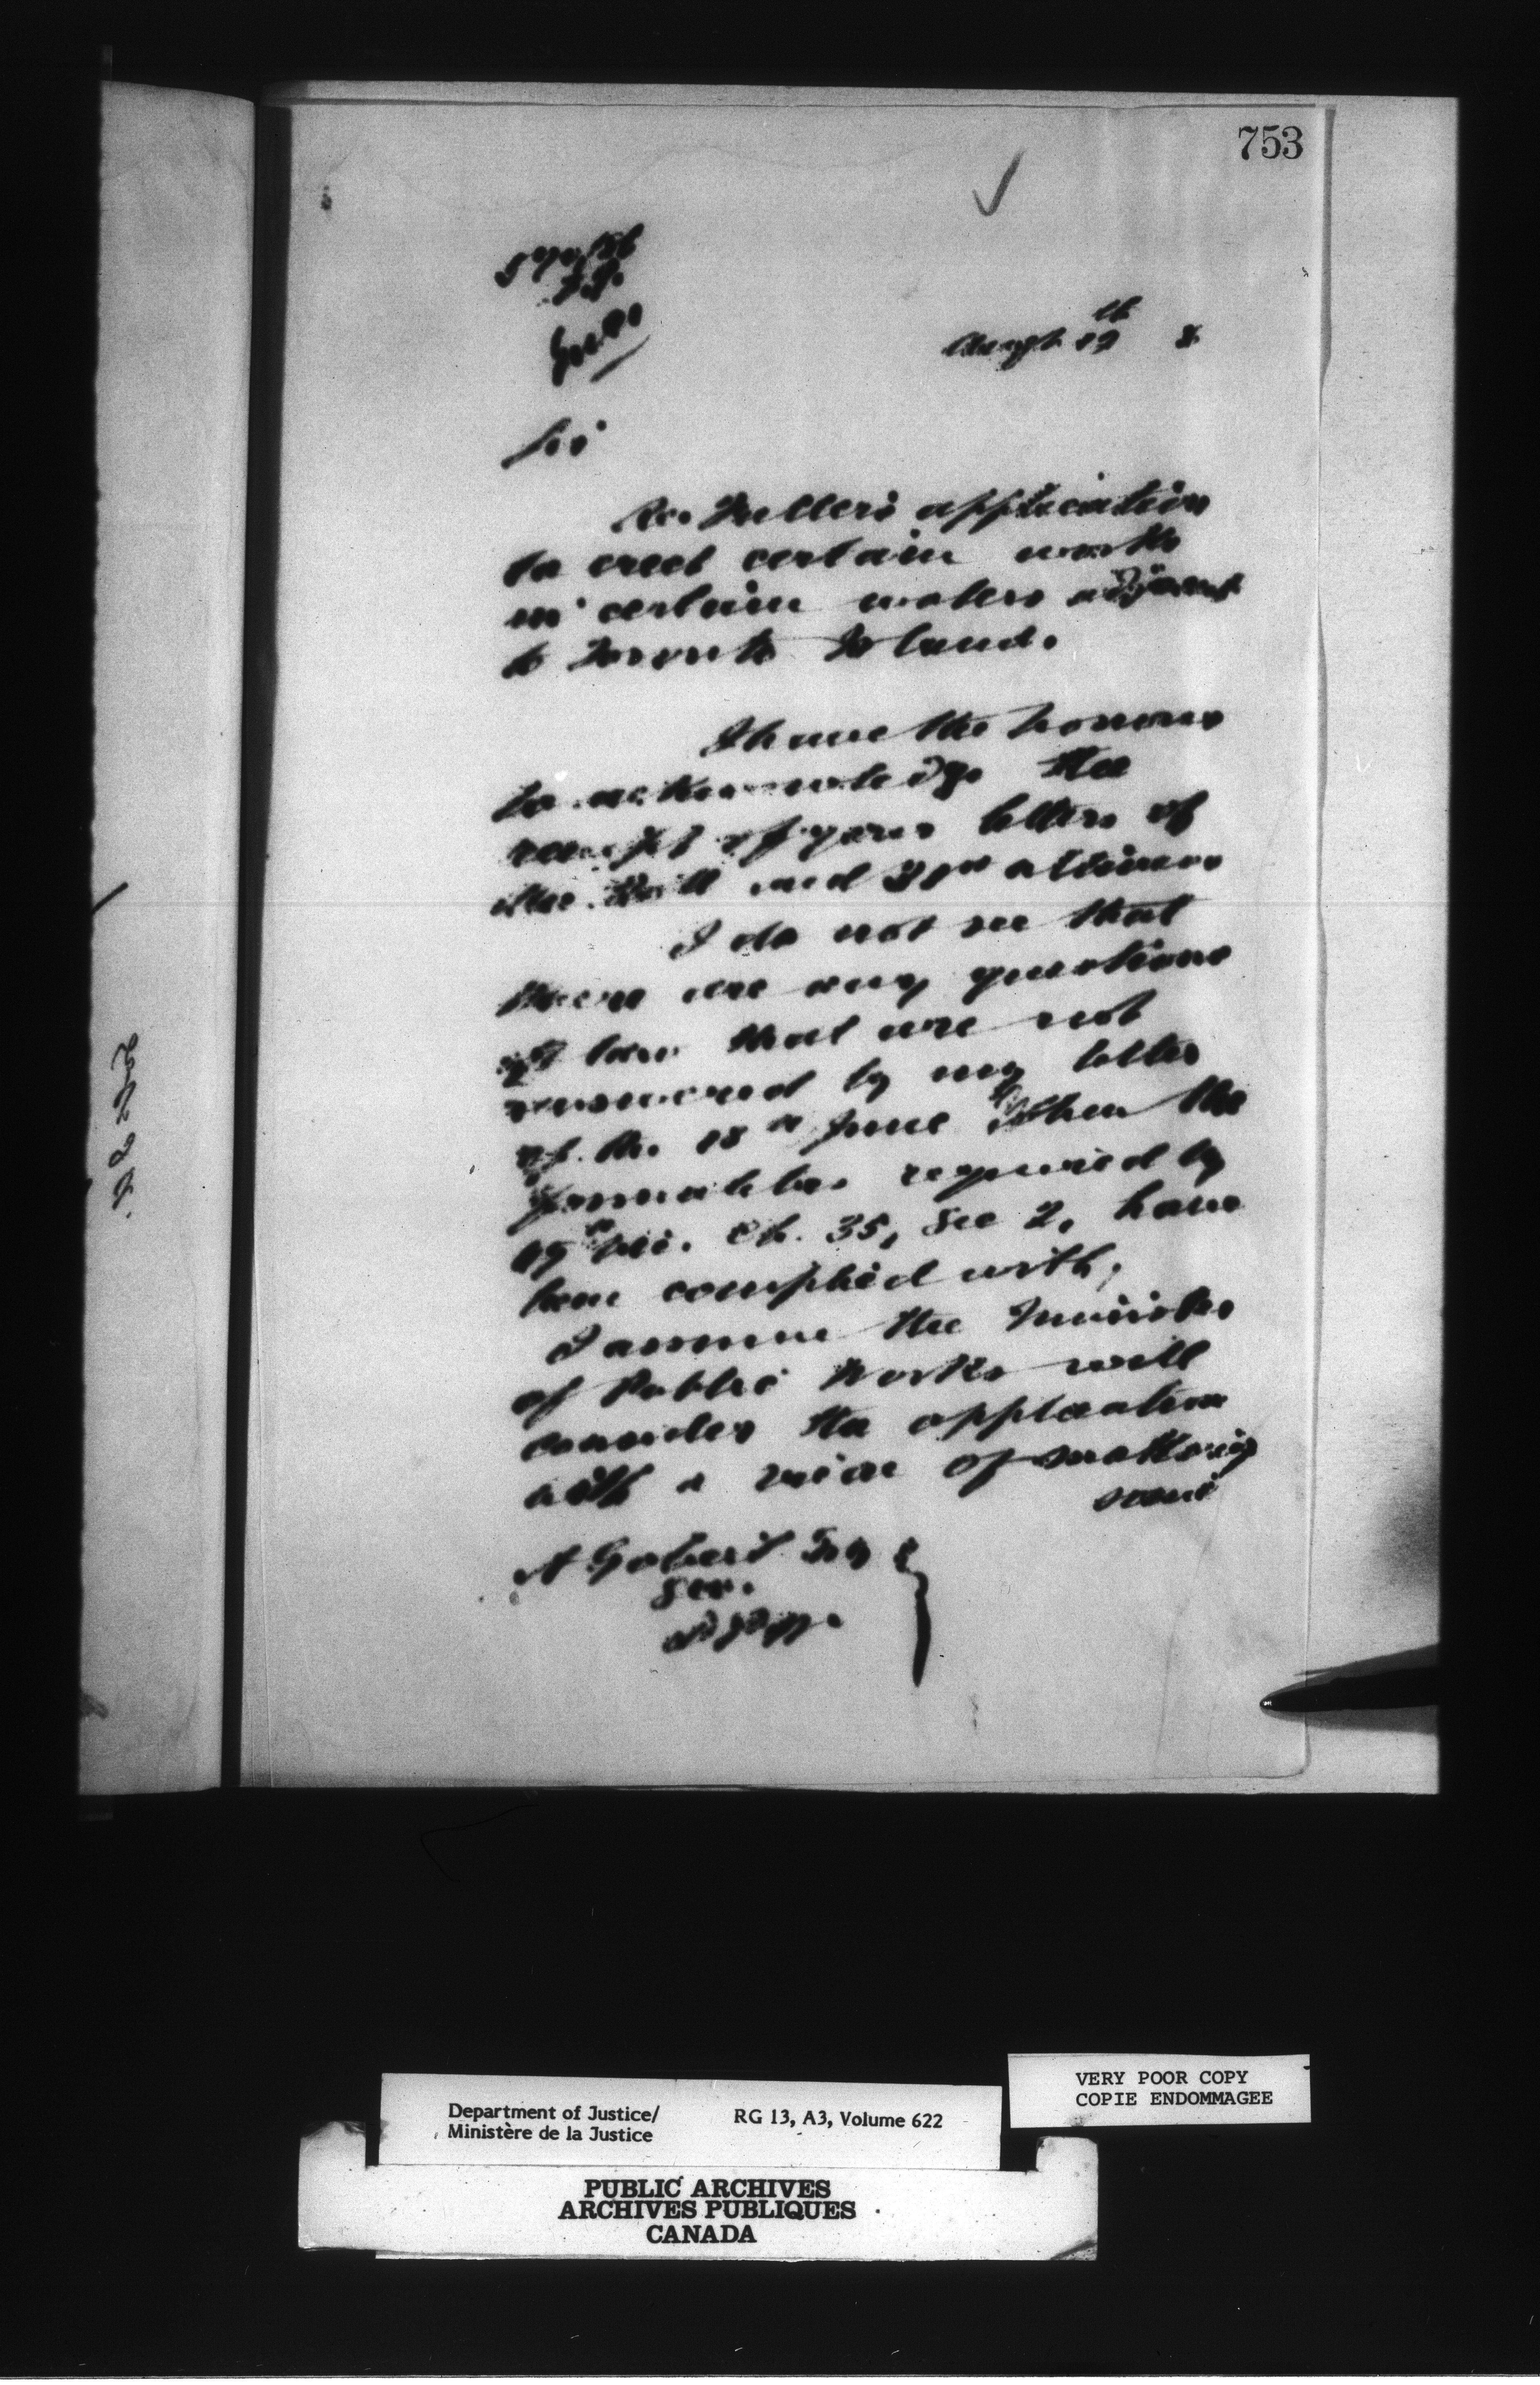 753
Sir
Re. Fuller's application
to erect certain works
in certain waters adjacent
to Toronto Island.
I have the honour
to acknowledge the
receipt of your letters of
the and ultimo
I do not see that
there are any questions
of law that are not
answered by my letter
of the 18th June When the
formalities required by
49 Vic. Ch. 35, Sec 2, have
been complied with,
I assume the Minister
of Public Works will
consider the application
with a view of making
some
A Gobeil Esq
Sec.
VERY POOR COPY
COPIE ENDOMMAGEE
Department of Justice/ RG 13, A3, Volume 622
Ministère de la Justice
PUBLIC ARCHIVES
ARCHIVES PUBLIQUES
CANADA